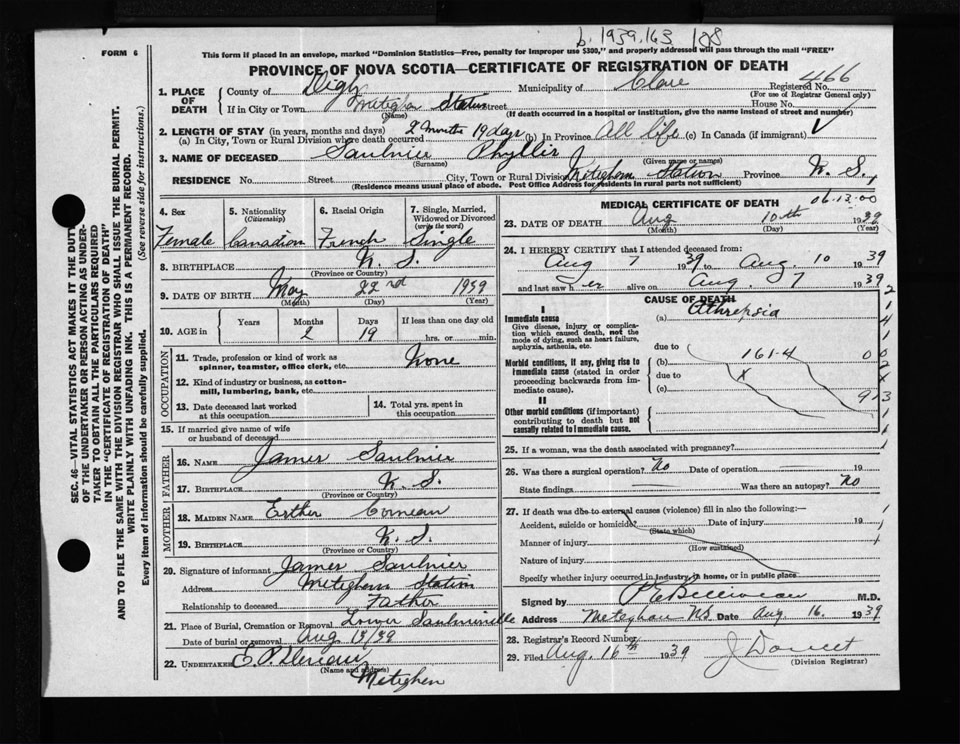 b. 1939.163 108
FORM 6
This form if placed in an envelope, marked "Dominion Statistics—Free, penalty for improper use $300," and properly addressed will pass through the mail "FREE"
PROVINCE OF NOVA SCOTIA—CERTIFICATE OF REGISTRATION OF DEATH
1. PLACE OF DEATH County of Digby Municipality of Clare Registered No. 466
(For use of Registrar General only)
If in City or Town Meteghan Station street House No.
(Name) (If death occurred in a hospital or institution, give the name instead of street and number)
2. LENGTH OF STAY (in years, months and days)
(a) In City, Town or Rural Division where death occurred 2 months 19 days (b) In Province All life (c) In Canada (if immigrant)
3. NAME OF DECEASED Saulnier Phyllis
(Surname) (Given name or names)
RESIDENCE No. Street City, Town or Rural Division Meteghan Station Province N. S.
(Residence means usual place of abode. Post Office Address for residents in rural parts not sufficient)
4. Sex Female
5. Nationality (Citizenship) Canadian
6. Racial Origin French
7. Single, Married, Widowed or Divorced (write the word) Single
8. BIRTHPLACE N. S.
(Province or Country)
9. DATE OF BIRTH May 22nd 1939
(Month) (Day) (Year)
10. AGE in Years Months Days If less than one day old
2 19 hrs. or min.
OCCUPATION
11. Trade, profession or kind of work as spinner, teamster, office clerk, etc. None
12. Kind of industry or business, as cotton-mill, lumbering, bank, etc.
13. Date deceased last worked at this occupation
14. Total yrs. spent in this occupation
15. If married give name of wife or husband of deceased
FATHER
16. NAME James Saulnier
17. BIRTHPLACE N. S.
(Province or Country)
MOTHER
18. MAIDEN NAME Esther Comeau
19. BIRTHPLACE N. S.
(Province or Country)
20. Signature of informant James Saulnier
Address Meteghan Station
Relationship to deceased Father
21. Place of Burial, Cremation or Removal Lower Saulnierville
Date of burial or removal Aug 13/39
22. UNDERTAKER E. P.
(Name and address)
Meteghan
MEDICAL CERTIFICATE OF DEATH
06.13.00
23. DATE OF DEATH Aug 10th 1939
(Month) (Day) (Year)
24. I HEREBY CERTIFY that I attended deceased from:
Aug 7 1939 to Aug. 10 1939
and last saw her alive on Aug. 7 1939
CAUSE OF DEATH
I
Immediate cause (a) Athrepsia
Give disease, injury or complication which caused death, not the mode of dying, such as heart failure, asphyxia, asthenia, etc.
due to
Morbid conditions, if any, giving rise to immediate cause (stated in order proceeding backwards from immediate cause). (b) 161-4
due to X
(c)
II
Other morbid conditions (if important) contributing to death but not causally related to immediate cause.
25. If a woman, was the death associated with pregnancy?
26. Was there a surgical operation? No Date of operation 19
State findings Was there an autopsy? No
27. If death was due to external causes (violence) fill in also the following:—
Accident, suicide or homicide? Date of injury 19
(State which)
Manner of injury
(How sustained)
Nature of injury
Specify whether injury occurred in industry, in home, or in public place
Signed by P E Belliveau M.D.
Address Meteghan NS Date Aug. 16. 1939
28. Registrar's Record Number
29. Filed Aug. 16th 1939 J Doucet
(Division Registrar)
SEC. 46—VITAL STATISTICS ACT MAKES IT THE DUTY
OF THE UNDERTAKER OR PERSON ACTING AS UNDER-
TAKER TO OBTAIN ALL THE PARTICULARS REQUIRED
IN THE "CERTIFICATE OF REGISTRATION OF DEATH"
AND TO FILE THE SAME WITH THE DIVISION REGISTRAR WHO SHALL ISSUE THE BURIAL PERMIT.
WRITE PLAINLY WITH UNFADING INK. THIS IS A PERMANENT RECORD.
Every item of information should be carefully supplied. (See reverse side for instructions.)